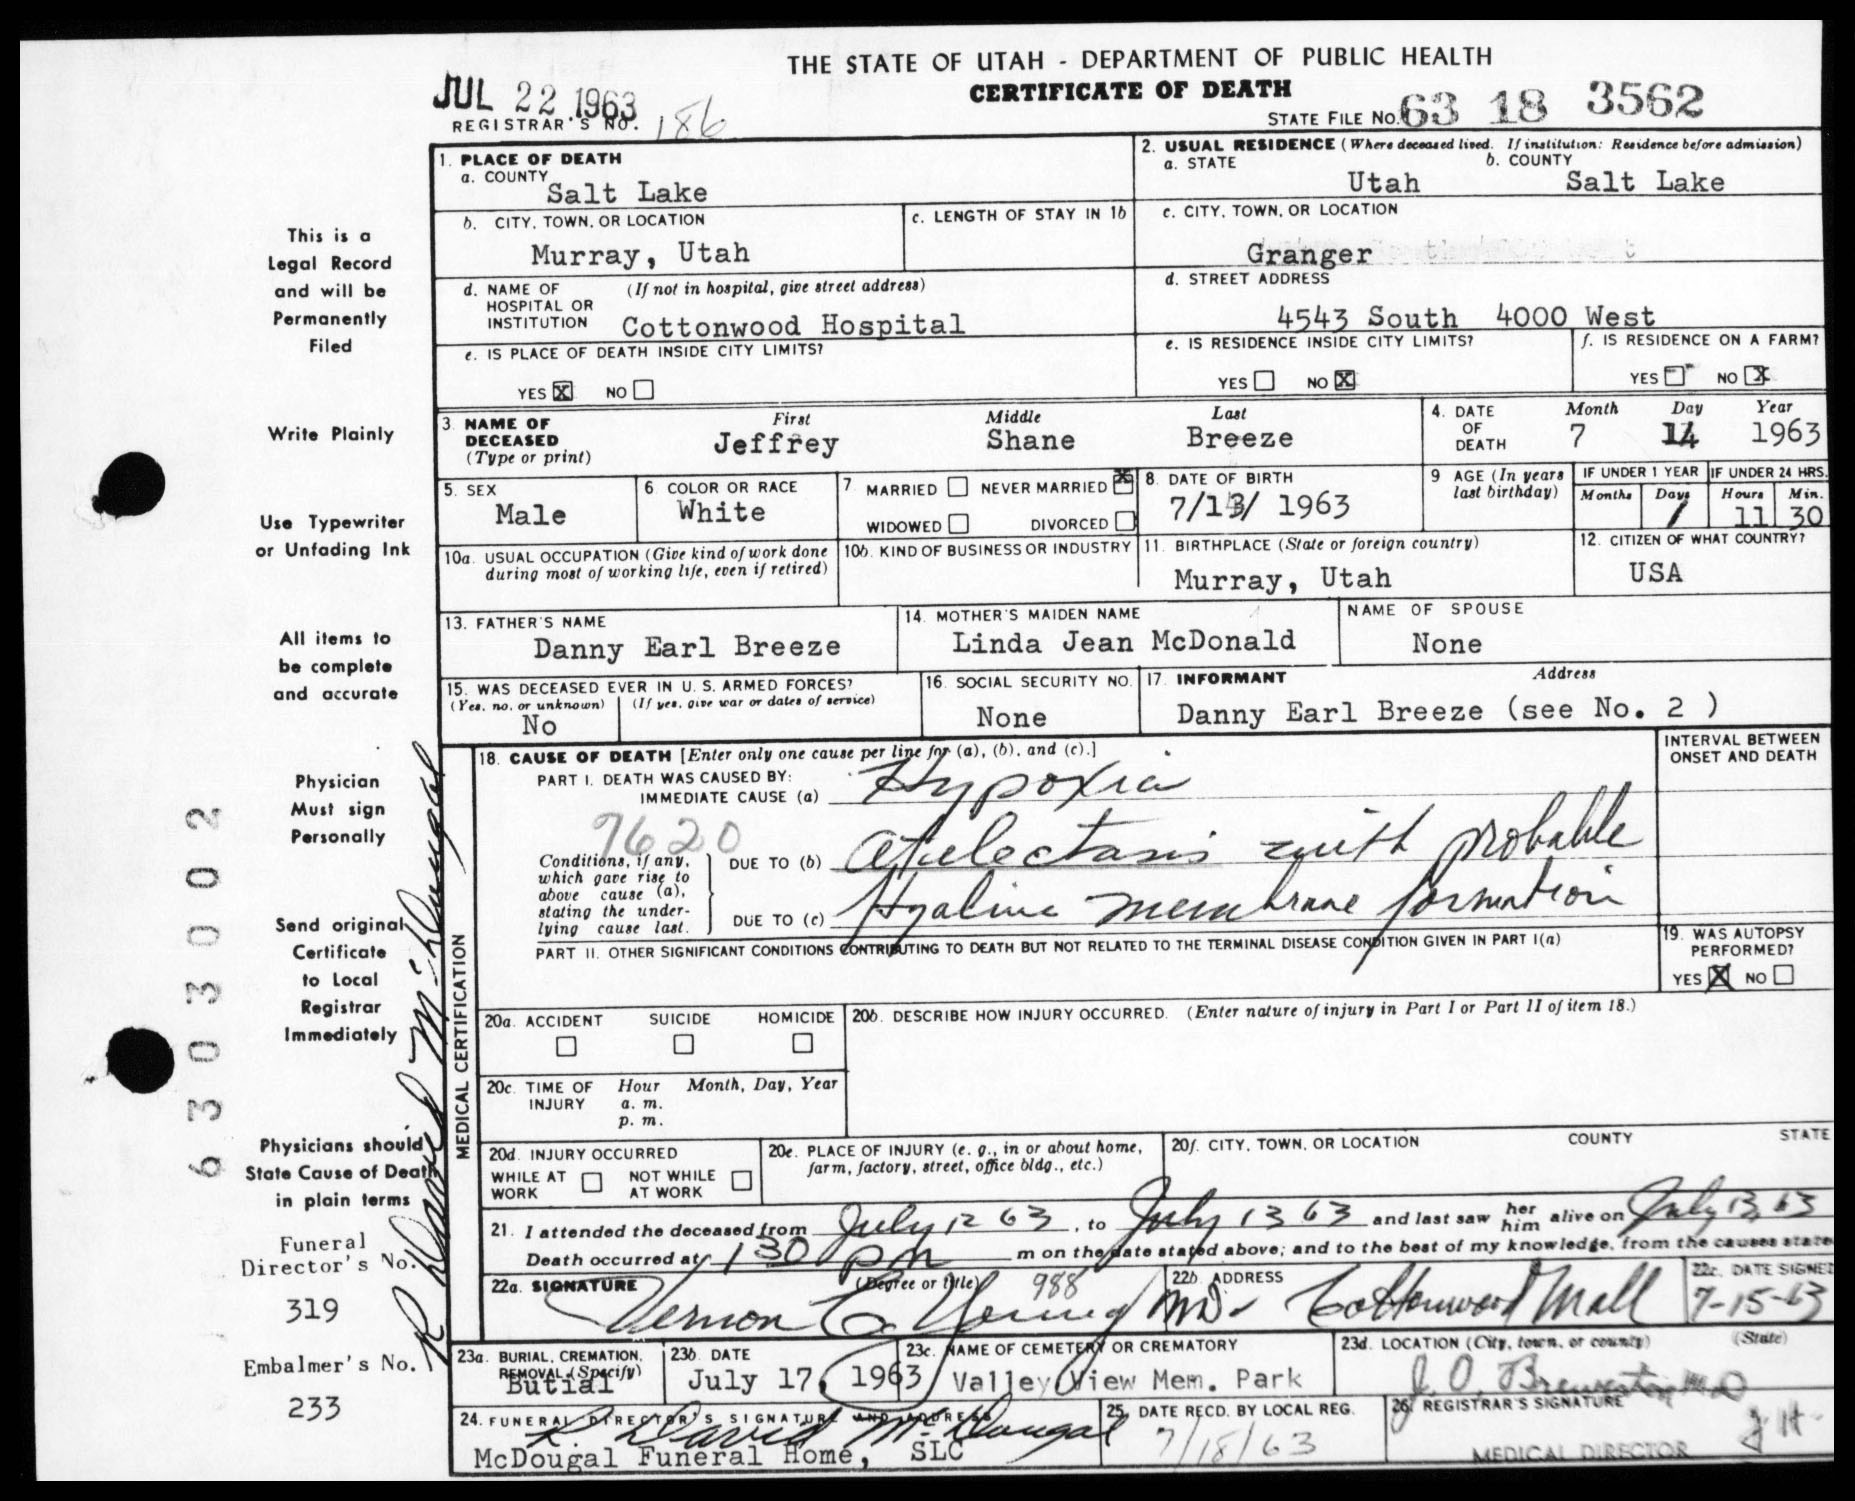 THE STATE OF UTAH - DEPARTMENT OF PUBLIC HEALTH
CERTIFICATE OF DEATH
JUL 22 1963
REGISTRAR'S NO. 186
STATE FILE NO. 63 18 3562
This is a
Legal Record
and will be
Permanently
Filed
Write Plainly
Use Typewriter
or Unfading Ink
All items to
be complete
and accurate
Physician
Must sign
Personally
Send original
Certificate
to Local
Registrar
Immediately
Physicians should
State Cause of Death
in plain terms
Funeral
Director's No.
319
Embalmer's No.
233
6303002
R David McDougal
1. PLACE OF DEATH
a. COUNTY
Salt Lake
b. CITY, TOWN, OR LOCATION
Murray, Utah
c. LENGTH OF STAY IN 1b
d. NAME OF HOSPITAL OR INSTITUTION (If not in hospital, give street address)
Cottonwood Hospital
e. IS PLACE OF DEATH INSIDE CITY LIMITS?
YES X NO
2. USUAL RESIDENCE (Where deceased lived. If institution: Residence before admission)
a. STATE b. COUNTY
Utah Salt Lake
c. CITY, TOWN, OR LOCATION
Granger
d. STREET ADDRESS
4543 South 4000 West
e. IS RESIDENCE INSIDE CITY LIMITS?
YES NO X
f. IS RESIDENCE ON A FARM?
YES NO X
3. NAME OF DECEASED (Type or print)
First Middle Last
Jeffrey Shane Breeze
4. DATE OF DEATH
Month Day Year
7 14 1963
5. SEX
Male
6. COLOR OR RACE
White
7. MARRIED NEVER MARRIED X
WIDOWED DIVORCED
8. DATE OF BIRTH
7/13/ 1963
9 AGE (In years last birthday)
IF UNDER 1 YEAR IF UNDER 24 HRS.
Months Days Hours Min.
1 11 30
10a. USUAL OCCUPATION (Give kind of work done during most of working life, even if retired)
10b. KIND OF BUSINESS OR INDUSTRY
11. BIRTHPLACE (State or foreign country)
Murray, Utah
12. CITIZEN OF WHAT COUNTRY?
USA
13. FATHER'S NAME
Danny Earl Breeze
14. MOTHER'S MAIDEN NAME
Linda Jean McDonald
NAME OF SPOUSE
None
15. WAS DECEASED EVER IN U. S. ARMED FORCES?
(Yes, no, or unknown) (If yes, give war or dates of service)
No
16. SOCIAL SECURITY NO.
None
17. INFORMANT Address
Danny Earl Breeze (see No. 2 )
MEDICAL CERTIFICATION
18. CAUSE OF DEATH [Enter only one cause per line for (a), (b), and (c).]
PART I. DEATH WAS CAUSED BY:
IMMEDIATE CAUSE (a) Hypoxia
7620
Conditions, if any, which gave rise to above cause (a), stating the underlying cause last.
DUE TO (b) Atelectasis with probable
DUE TO (c) Hyaline membrane formation
INTERVAL BETWEEN ONSET AND DEATH
PART II. OTHER SIGNIFICANT CONDITIONS CONTRIBUTING TO DEATH BUT NOT RELATED TO THE TERMINAL DISEASE CONDITION GIVEN IN PART I(a)
19. WAS AUTOPSY PERFORMED?
YES X NO
20a. ACCIDENT SUICIDE HOMICIDE
20b. DESCRIBE HOW INJURY OCCURRED. (Enter nature of injury in Part I or Part II of item 18.)
20c. TIME OF INJURY Hour Month, Day, Year
a. m.
p. m.
20d. INJURY OCCURRED
WHILE AT WORK NOT WHILE AT WORK
20e. PLACE OF INJURY (e. g., in or about home, farm, factory, street, office bldg., etc.)
20f. CITY, TOWN, OR LOCATION COUNTY STATE
21. I attended the deceased from July 12 63, to July 13 63 and last saw her him alive on July 13, 63
Death occurred at 1 30 pm m on the date stated above; and to the best of my knowledge, from the causes state
22a. SIGNATURE (Degree or title) 988
Vernon C. Young MD.
22b. ADDRESS
Cottonwood Mall
22c. DATE SIGNED
7-15-63
23a. BURIAL, CREMATION, REMOVAL (Specify)
Butial
23b. DATE
July 17, 1963
23c. NAME OF CEMETERY OR CREMATORY
Valley View Mem. Park
23d. LOCATION (City, town, or county) (State)
24. FUNERAL DIRECTOR'S SIGNATURE AND ADDRESS
R. David McDougal
McDougal Funeral Home, SLC
25. DATE RECD. BY LOCAL REG.
7/18/63
26. REGISTRAR'S SIGNATURE
MEDICAL DIRECTOR